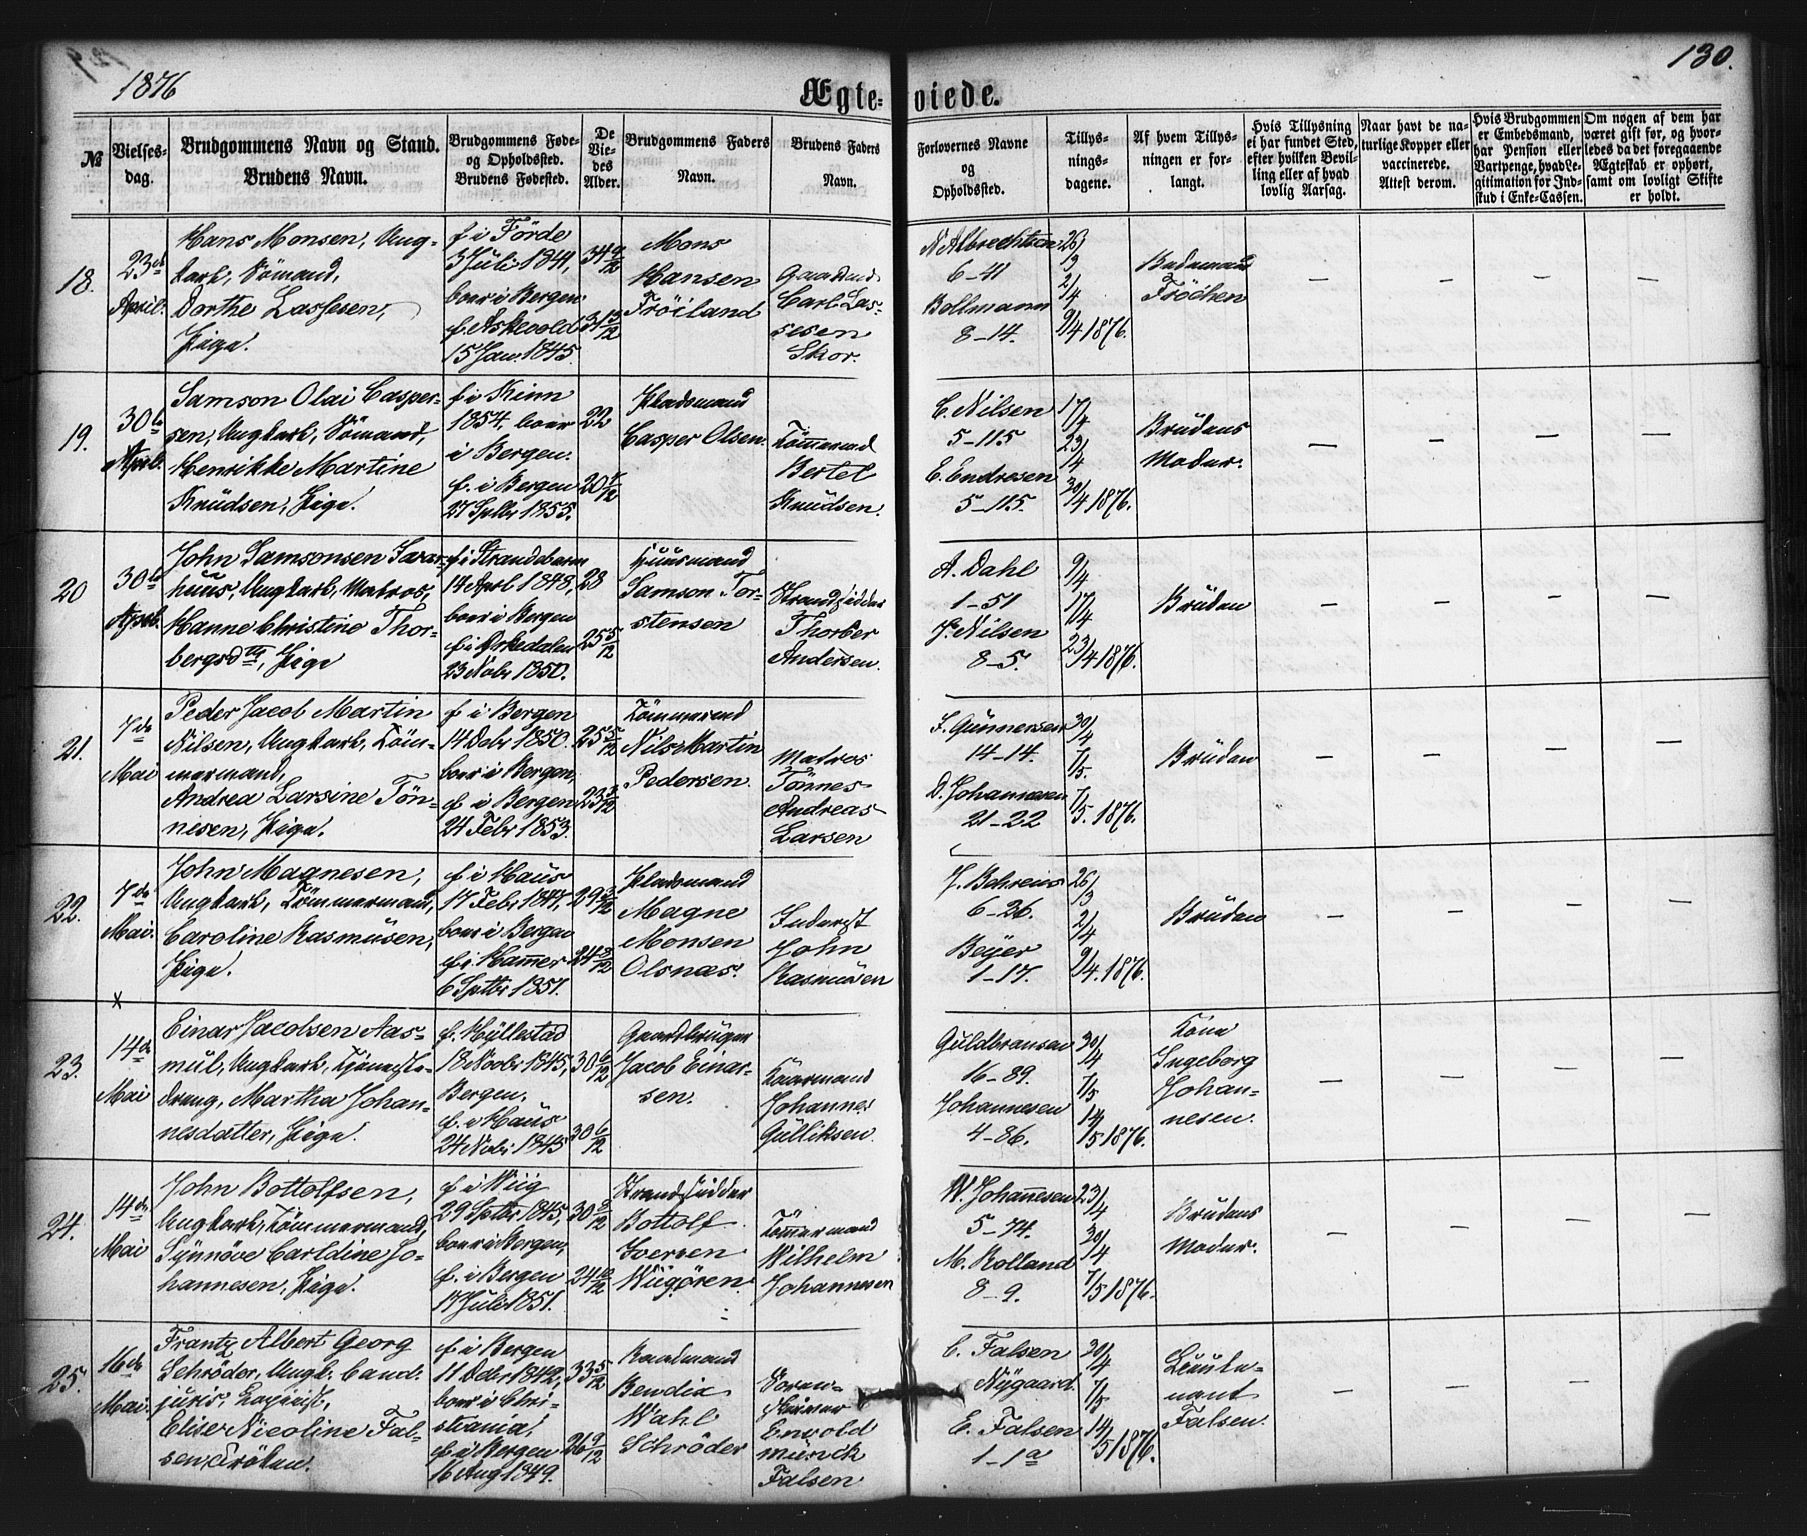 1876
Ægte- viede.
130.
№
Vielses-
dag.
Brudgommens Navn og Stand.
Brudens Navn.
Brudgommens Føde-
og Opholdssted.
Brudens Fødested.
De
Vie-
des
Alder.
Brudgommens Faders
Navn.
Brudens Faders
Navn.
Forlovernes Navne
og
Opholdssted.
Tillys-
nings-
dagene.
Af hvem Tillys-
ningen er for-
langt.
Hvis Tillysning
ei har fundet Sted,
efter hvilken Bevil-
ling eller af hvad
lovlig Aarsag.
Naar havt de na-
turlige Kopper eller
vaccinerede.
Attest derom.
Hvis Brudgommen
er Embedsmand,
har Pension eller
Vartpenge, hvad Le-
gitimation for Ind-
skud i Enke-Cassen.
Om nogen af dem har
været gift før, og hvor-
ledes da det foregaaende
Ægteskab er ophørt,
samt om lovligt Skifte
er holdt.
18.
23de
April.
Hans Monsen, Ung-
karl, Sömand,
Dorthe Lassesen,
Pige.
f. i Förde
3 Juli 1844,
boer i Bergen.
f. Askevold
15 Jan. 1845.
Mons
Hansen
Fröiland
Gaardmd.
Carl Las-
sesen
Skor.
N Albrechtsen
6-41
Bollmann
8-14.
26/3
2/4
9/4 1876.
Budemand
Fröchen
— — — —
19.
30te
April.
Samson Olai Casper-
sen, Ungkarl, Sömand,
Henrikke Martine
Knudsen, Pige.
f. i Kinn
1854, boer
i Bergen.
f. i Bergen
27 Sptbr 1855.
22
Pladsmand
Casper Olsen.
Tömmermd
Bertel
Knudsen.
C. Nilsen
5-115
E. Endresen
5-115.
17/4
23/4
30/4 1876.
Brudens
Moder.
— — — —
20
30te
April.
John Samsonsen
huus, Ungkarl, Matros,
Hanne Christine Thor-
bergsdtr, Pige
f. i Strandebarm
14 April 1848,
boer i Bergen
f. i Örkedalen
23 Nobr 1850.
28
25 5/12
Huusmand
Samson Tor-
stensen
Strandsidder
Thorber
Andersen.
A. Dahl
1-51
J. Nilsen
8-5.
9/4
17/4
23/4 1876.
Bruden
— — — —
21.
7de
Mai
Peder Jacob Martin
Nilsen, Ungkarl, Töm-
mermand,
Andrea Larsine Tön-
nesen, Pige.
f. i Bergen
14 Debr 1850.
boer i Bergen,
f. i Bergen
24 Febr 1853.
25 5/12
Tömmermd
Nils Martin
Pedersen.
Matros
Tönnes
Andreas
Larsen
F. Gunnersen
14-14.
D. Johannesen
21-22
30/4
7/5.
7/5. 1876.
Bruden
— — — —
22.
7de
Mai.
John Magnesen,
Ungkarl, Tömmermand,
Caroline Rasmusen,
Pige.
f. i Haus
17 Febr 1847,
boer i Bergen
f. i Hamer
6 Sptbr 1851.
Pladsmand
Magne
Monsen
Olsnæs.
Inderst
John
Rasmusen
J. Behrens
6-26.
Beÿer
1-17.
26/3
2/4
9/4. 1876.
Bruden
— — — —
x
23.
14de
Mai
Einar Jacobsen Aas-
mul, Ungkarl, Tjeneste-
dreng, Martha Johan-
nesdatter, Pige.
f. Hyllestad
18 Novbr 1845,
Bergen.
f. i Haus
24 Nobr 1845
30 6/12
30 6/12
Gaardbruger
Jacob Einar-
sen.
Kaarmand
Johannes
Gulliksen.
Guldbransen
16-89.
Johannesen
4-86.
30/4
7/5
14/5 1876.
Kone
Ingeborg
Johan-
nesen.
— — — —
24.
14de
Mai
John Bottolfsen,
Ungkarl, Tömmermand,
Synnöve Carldine Jo-
hannesen, Pige.
f. i Wiig
29 Sptbr 1845,
boer i Bergen,
f. i Bergen
17 Juli 1851.
24 10/12
Strandsidder
Bottolf
Iversen
Wiigören.
Tömermand
Wilhelm
Johannesen
W. Johannesen
5-74.
M. Rolland
8-9.
23/4
30/4
7/5 1876.
Brudens
Moder.
— — — —
25.
16de
Mai.
Frantz Albert Georg
Schröder, Ungk. Cand.
juris,
Elise Nicoline Fal-
sen, Fröken.
f. i Bergen
11 Debr 1842,
boer i Chri-
stiania,
f. i Bergen
16 Aug 1849.
33 5/12
26 9/12
Kaalmand
Bendix
Wahl
Schröder
Soren-
skriver
Enwold
Munck
Falsen
C. Falsen
Nygaard.
E. Falsen
1-1a
30/4
7/5
14/5 1876.
Lieute-
nant
Falsen.
— — — —